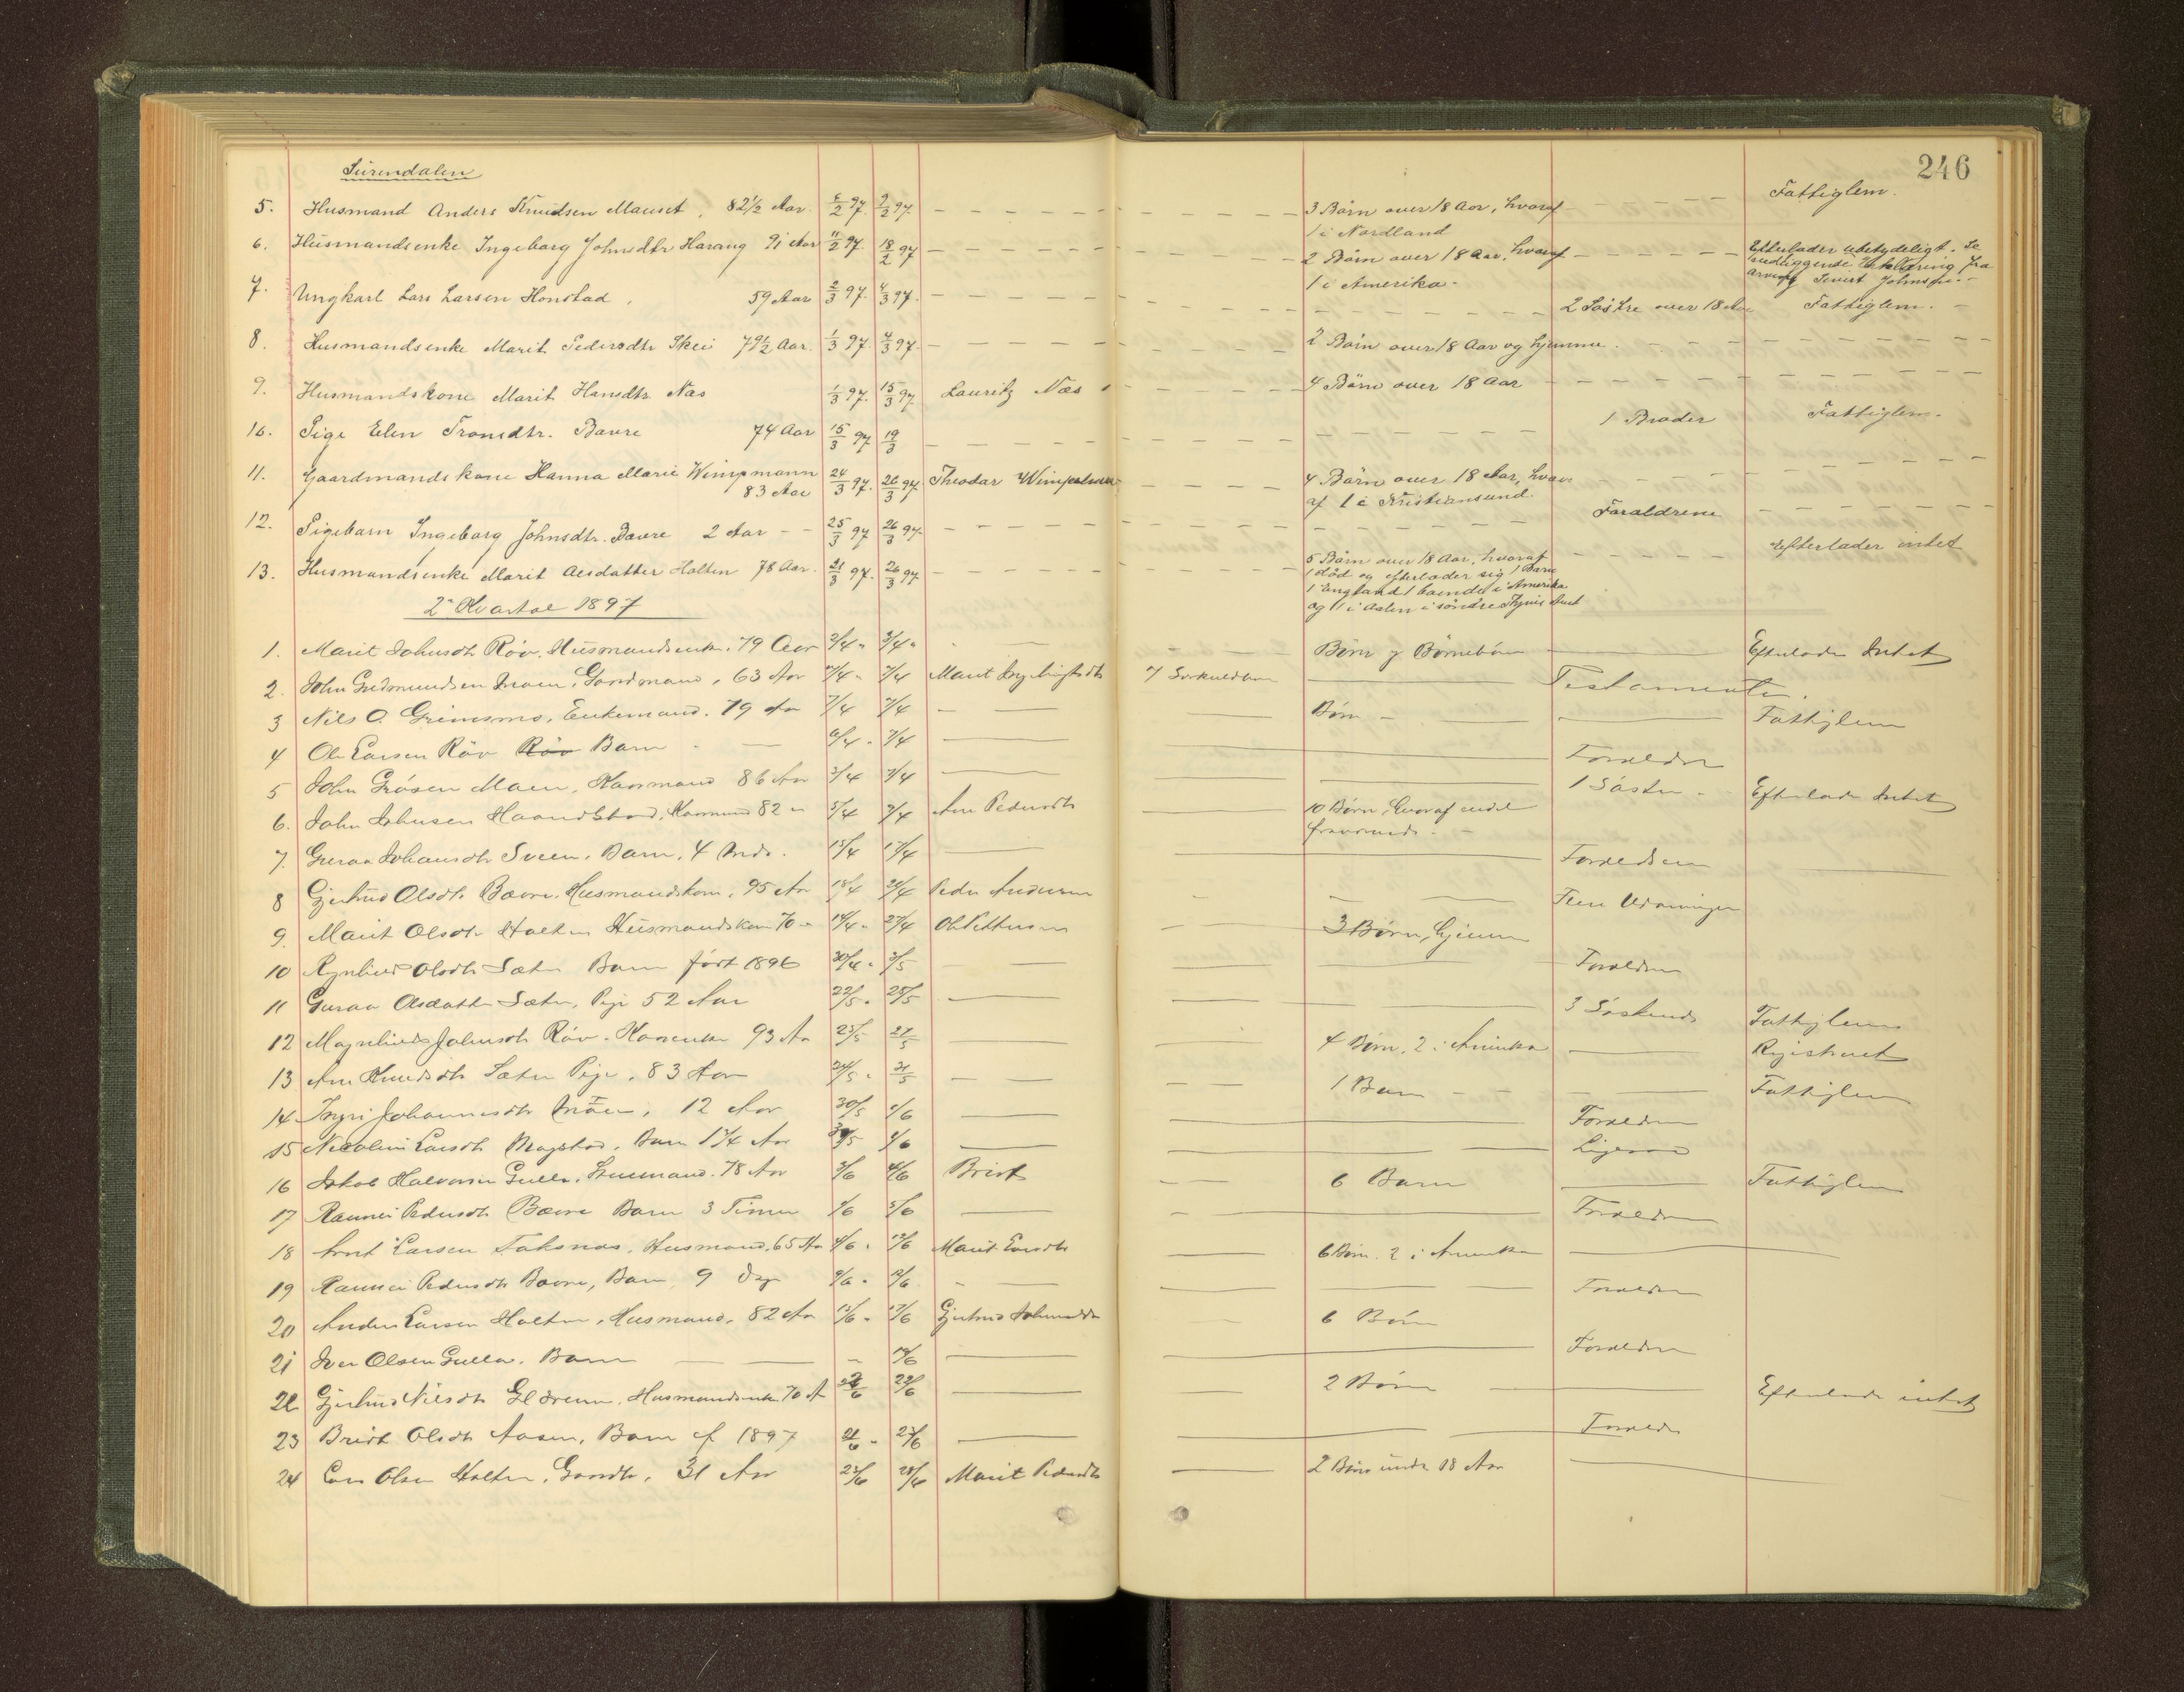 246
Surendalen
5. Husmand Anders Knudsen Mauset, 82 1/2 Aar. 97. 9/2 97. 3 Börn over 18 Aar, hvoraf Fattiglem.
1 i Nordland
6. Husmandsenke Ingeborg Johnsdtr Harang 91 Aar 11/2 97. 18/2 97 2 Börn over 18 Aar, hvoraf Efterlader ubetydeligt. Se
1 i Amerika. indliggende Erklæring fra
arving Sivert Johnsen.
7. Ungkarl Lars Larsen Honstad, 59 Aar 2/3 97. 4/3 97. 2 Söstre over 18 Aar Fattiglem.
8. Husmandsenke Marit Pedersdtr Skei 79 1/2 Aar. 1/3 97. 4/3 97. 2 Börn over 18 Aar og hjemme.
9. Husmandskone Marit Hansdtr Næs 1/3 97. 15/3 97. Lauritz Næs 4 Börn over 18 Aar
10. Pige Elen Tronsdtr. Bævre 74 Aar 15/3 97 19/3 1 Broder Fattiglem.
11. Gaardmandskone Hanna Marie Wimpmann 24/3 97. 26/3 97. Theodor 4 Börn over 18 Aar, hvor
83 Aar af 1 i Kristiansund.
12. Pigebarn Ingeborg Johnsdtr. Bævre 2 Aar 25/3 97 26/3 97. Forældrene
13. Husmandsenke Marit Olsdatter Holten 78 Aar. 21/3 97. 26/3 97 5 Börn over 18 Aar, hvoraf Efterlader intet
1 död og efterlader sig 1 Barn
1 England 1 boende i Amerika
og 1 i Aalen i söndre
2det Kvartal 1897
1. Marit Johnsdtr Röv. Husmandsenke. 79 Aar 2/4 3/4 Börn og Börnebörn Efterlader Intet
2. John Gudmundsen Moen, Gaardmand, 63 Aar 7/4 Marit Testamente.
3 Nils O. Grimsmo, Enkemand. 79 Aar 7/4 7/4 Börn Fattiglem
4 Ole Larsen Röv Röv Barn 6/4 7/4 Forældre
5 John Moen, Kaarmand 86 Aar 3/4 7/4 1 Söster Efterlader Intet
6. John Johnsen Haandstad, Kaarmand 82 " 5/4 7/4 Ane Pedersdtr 10 Börn, hvoraf endel
fraværende
7. Guraa Johansdtr Sveen, Barn, 4 Mdr. 15/4 17/4 Forældrene
8 Gjertrud Olsdtr. Bævre. Husmandskone, 95 Aar 18/4 Peder Andersen Flere Udarvinger
9. Marit Olsdtr Holten Husmandskone 70 " 14/4 27/4 3 Börn, hjemme
10 Ragnhild Olsdtr Sæter Barn födt 1896 30/4 3/5 Forældre
11 Guraa Olsdatter Sæter, Pige 52 Aar 22/5 25/5 3 Söskende Fattiglem
12 Magnhild Johnsdtr Röv. Kaarenke 93 Aar 25/5 4 Börn, 2 i Amerika Registreret
13 Ane Knudsdtr Sæter Pige. 83 Aar 24/5 31/5 1 Barn Fattiglem
14 Ingri Johannesdtr Moen, 12 Aar 30/5 Forældre
15 Nicoline Larsdtr Mogstad, Barn 1 1/4 Aar Ligesaa
16 Jakob Halvorsen Gulla, Husmand. 78 Aar 3/6 4/6 Brit 6 Barn Fattiglem
17 Rannei Pedersdtr Bævre Barn 3 Timer 5/6 Forældre
18 Arnt Larsen Taksnæs, Husmand, 65 Aar 4/6 12/6 Marit Larsdtr 6 Börn. 2 i Amerika
19 Rannei Pedersdtr Bævre, Barn 9 Dage 9/6 12/6 Forældre
20 Anders Larsen Holten, Husmand, 82 Aar 13/6 17/6 Gjertrud Johnsdtr 6 Börn
21 Iver Olsen Gulla. Barn 19/6 Forældre
22 Gjertrud Nilsdtr, Husmandsenke 70 A 2 Börn Efterlader intet
23 Brit Olsdtr Aasen, Barn af 1897 21/6 27/6 Foreldr
24 Lars Olsen Holten, Gaardbr. 31 Aar 23/6 28/6 Marit Pedersdtr 2 Börn under 18 Aar